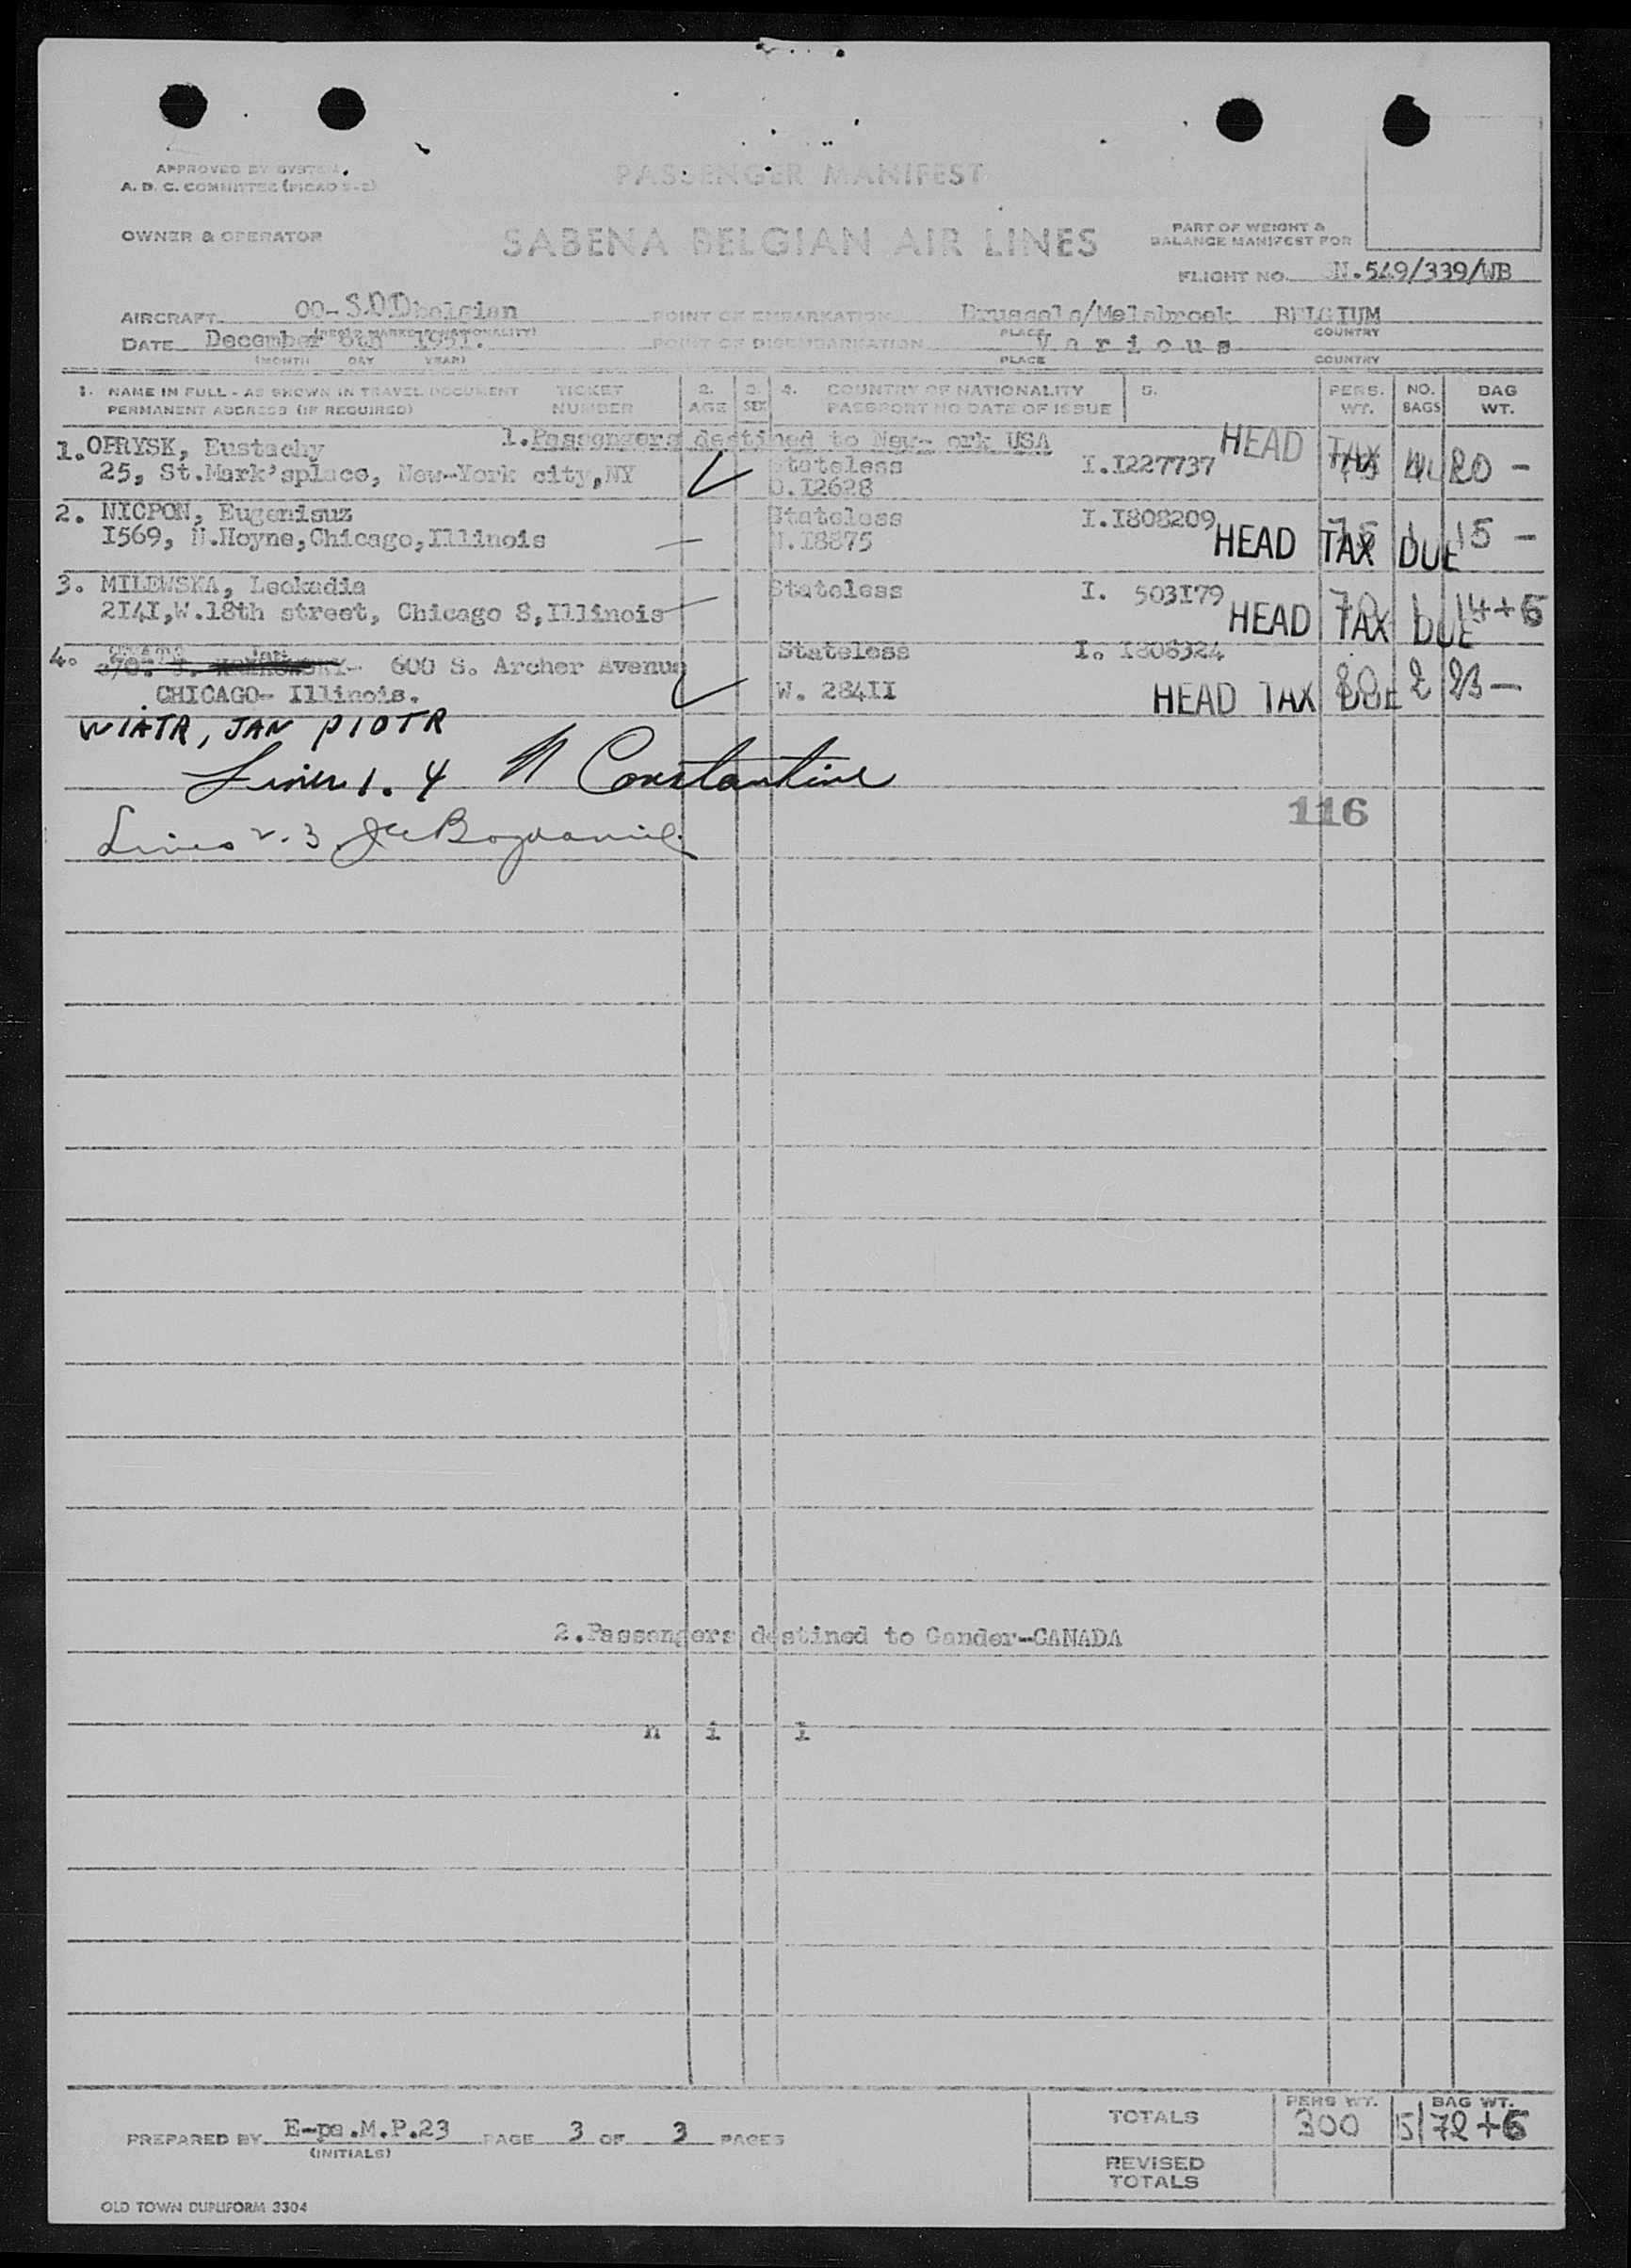 APPROVED BY SYSTEM
A. D. C. COMMITTEE (PICAO 2-2)
PASSENGER MANIFEST
OWNER & OPERATOR
SABENA BELGIAN AIR LINES
PART OF WEIGHT &
BALANCE MANIFEST FOR
FLIGHT NO. SN.549/339/WB
AIRCRAFT OO-S.D.D belgian
POINT OF EMBARKATION Brussels/Melsbroek BELGIUM
PLACE COUNTRY
DATE December 8th 1951.
POINT OF DISEMBARKATION Various
(MONTH DAY YEAR)
PLACE COUNTRY
1. NAME IN FULL - AS SHOWN IN TRAVEL DOCUMENT TICKET 2. 3. 4. COUNTRY OF NATIONALITY 5. PERS. NO. BAG
PERMANENT ADDRESS (IF REQUIRED) NUMBER AGE SEX PASSPORT NO DATE OF ISSUE WT. BAGS WT.
1.Passengers destined to New- ork USA
1. OPRYSK, Eustachy Stateless I.I227737 HEAD TAX 20 -
25, St.Mark'splace, New-York city,NY O.I2628
2. NICPON, Eugenisuz Stateless I.I808209 75 1 15 -
I569, N.Hoyne,Chicago,Illinois N.I8875 HEAD TAX DUE
3. MILEWSKA, Leokadia Stateless I. 503I79 70 1 14+6
2I4I,W.18th street, Chicago 8,Illinois HEAD TAX DUE
4. Jan Stateless I. I808324
600 S. Archer Avenue
CHICAGO- Illinois. W. 284II HEAD TAX DUE 80 2 23 -
WIATR, JAN PIOTR
Lines 1. 4 N Constantine
116
Lines 2. 3
2.Passengers destined to Gander-CANADA
n i l
PREPARED BY E-pa.M.P.23 PAGE 3 OF 3 PAGES
(INITIALS)
PERS WT. BAG WT.
TOTALS 300 5 72+6
REVISED
TOTALS
OLD TOWN DUPLIFORM 3304